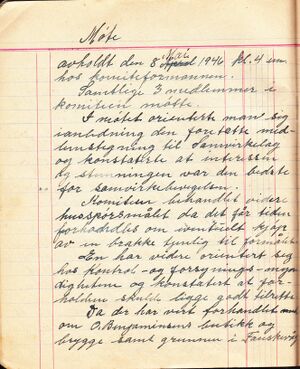 Møte
avholdt den 8 Mai April 1946 kl. 4 em
hos komiteformannen.
Samtlige 3 medlemmer i
komiteen møtte.
I møtet orienterte man sig
ianledning den foretatte med-
lemstegning til Samvirkelag
og konstaterte at interessen
og stemningen var den bedste
for samvirkebevegelsen.
Komiteen behandlet videre
husspørsmålet da det før tiden
forhandles om eventuelt kjøp
av en brakke tjenlig til formålet.
En har videre orientert seg
hos kontrol- og forsynings-myn-
dighetene og konstatert at for-
holdene skulde ligge godt tilrette
Da der har vært forhandlet
om O. Benjaminsens butikk og
brygge samt grunnen i Fauskevåg